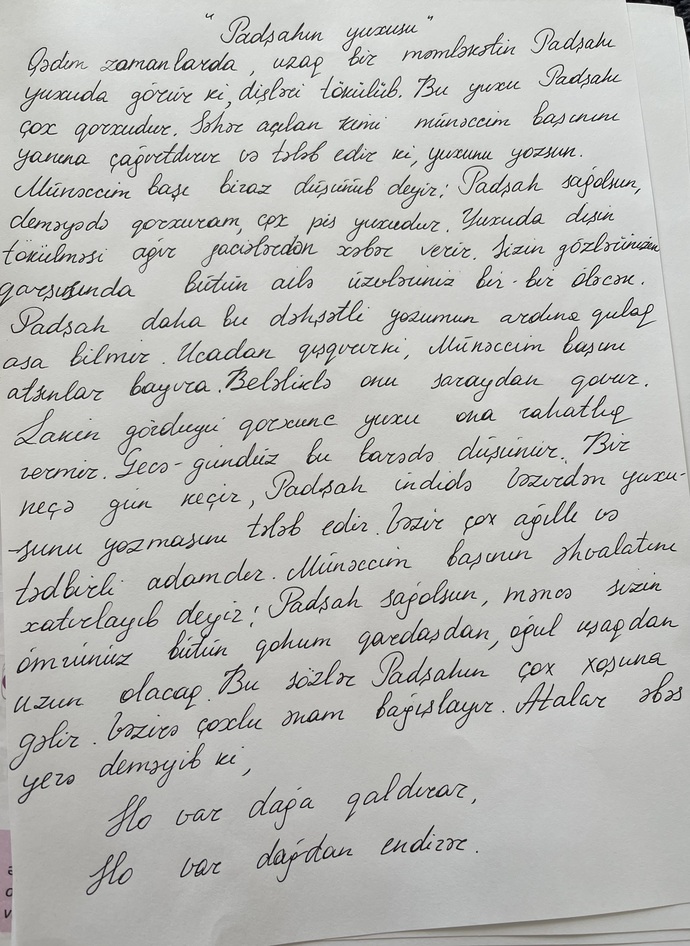 "Padşahın yuxusu"
Qədim zamanlarda, uzaq bir məmləkətin Padşahı
yuxuda görür ki, dişləri tökülüb. Bu yuxu Padşahı
çox qorxudur. Səhər açılan kimi münəccim başının
yanına çağırtdırır və tələb edir ki, yuxunu yozsun.
Münəccim başı biraz düşünüb deyir: Padşah sağolsun,
deməyədə qorxuram, çox pis yuxudur. Yuxuda dişin
tökülməsi ağır faciələrdən xəbər verir. Sizin gözlərinizin
qarşısında bütün ailə üzvləriniz bir-bir öləcək.
Padşah daha bu dəhşətli yozumun ardına qulaq
asa bilmir. Ucadan qışqırırki, Münəccim başını
atsınlar bayıra. Beləliklə onu saraydan qovur.
Lakin gördüyü qorxunc yuxu ona rahatlıq
vermir. Gecə-gündüz bu barədə düşünür. Bir
neçə gün keçir, Padşah indidə vəzirdən yuxu-
-sunu yozmasını tələb edir. Vəzir çox ağıllı və
tədbirli adamdır. Münəccim başının əhvalatını
xatırlayıb deyir: Padşah sağolsun, məncə sizin
ömrünüz bütün qohum qardaşdan, oğul uşaqdan
uzun olacaq. Bu sözlər Padşahın çox xoşuna
gəlir. Vəzirə çoxlu ənam bağışlayır. Atalar əbəs
yerə deməyib ki,
Ho var dağa qaldırar,
Ho var dağdan endirər.